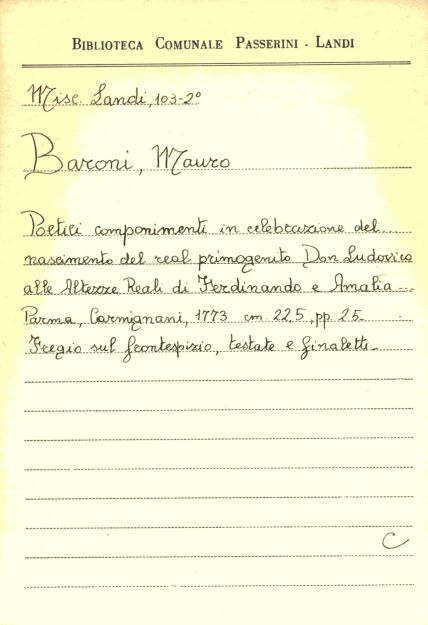 BIBLIOTECA COMUNALE PASSERINI - LANDI
Misc. Landi, 103-2º
Baroni, Mauro
Poetici componimenti in celebrazione del
nascimento del real primogenito Don Ludovico
alle Altezze Reali di Ferdinando e Amalia
Parma, Carmignani, 1773 cm 22,5, pp. 25
Fregio sul frontespizio, testate e finaletti
C